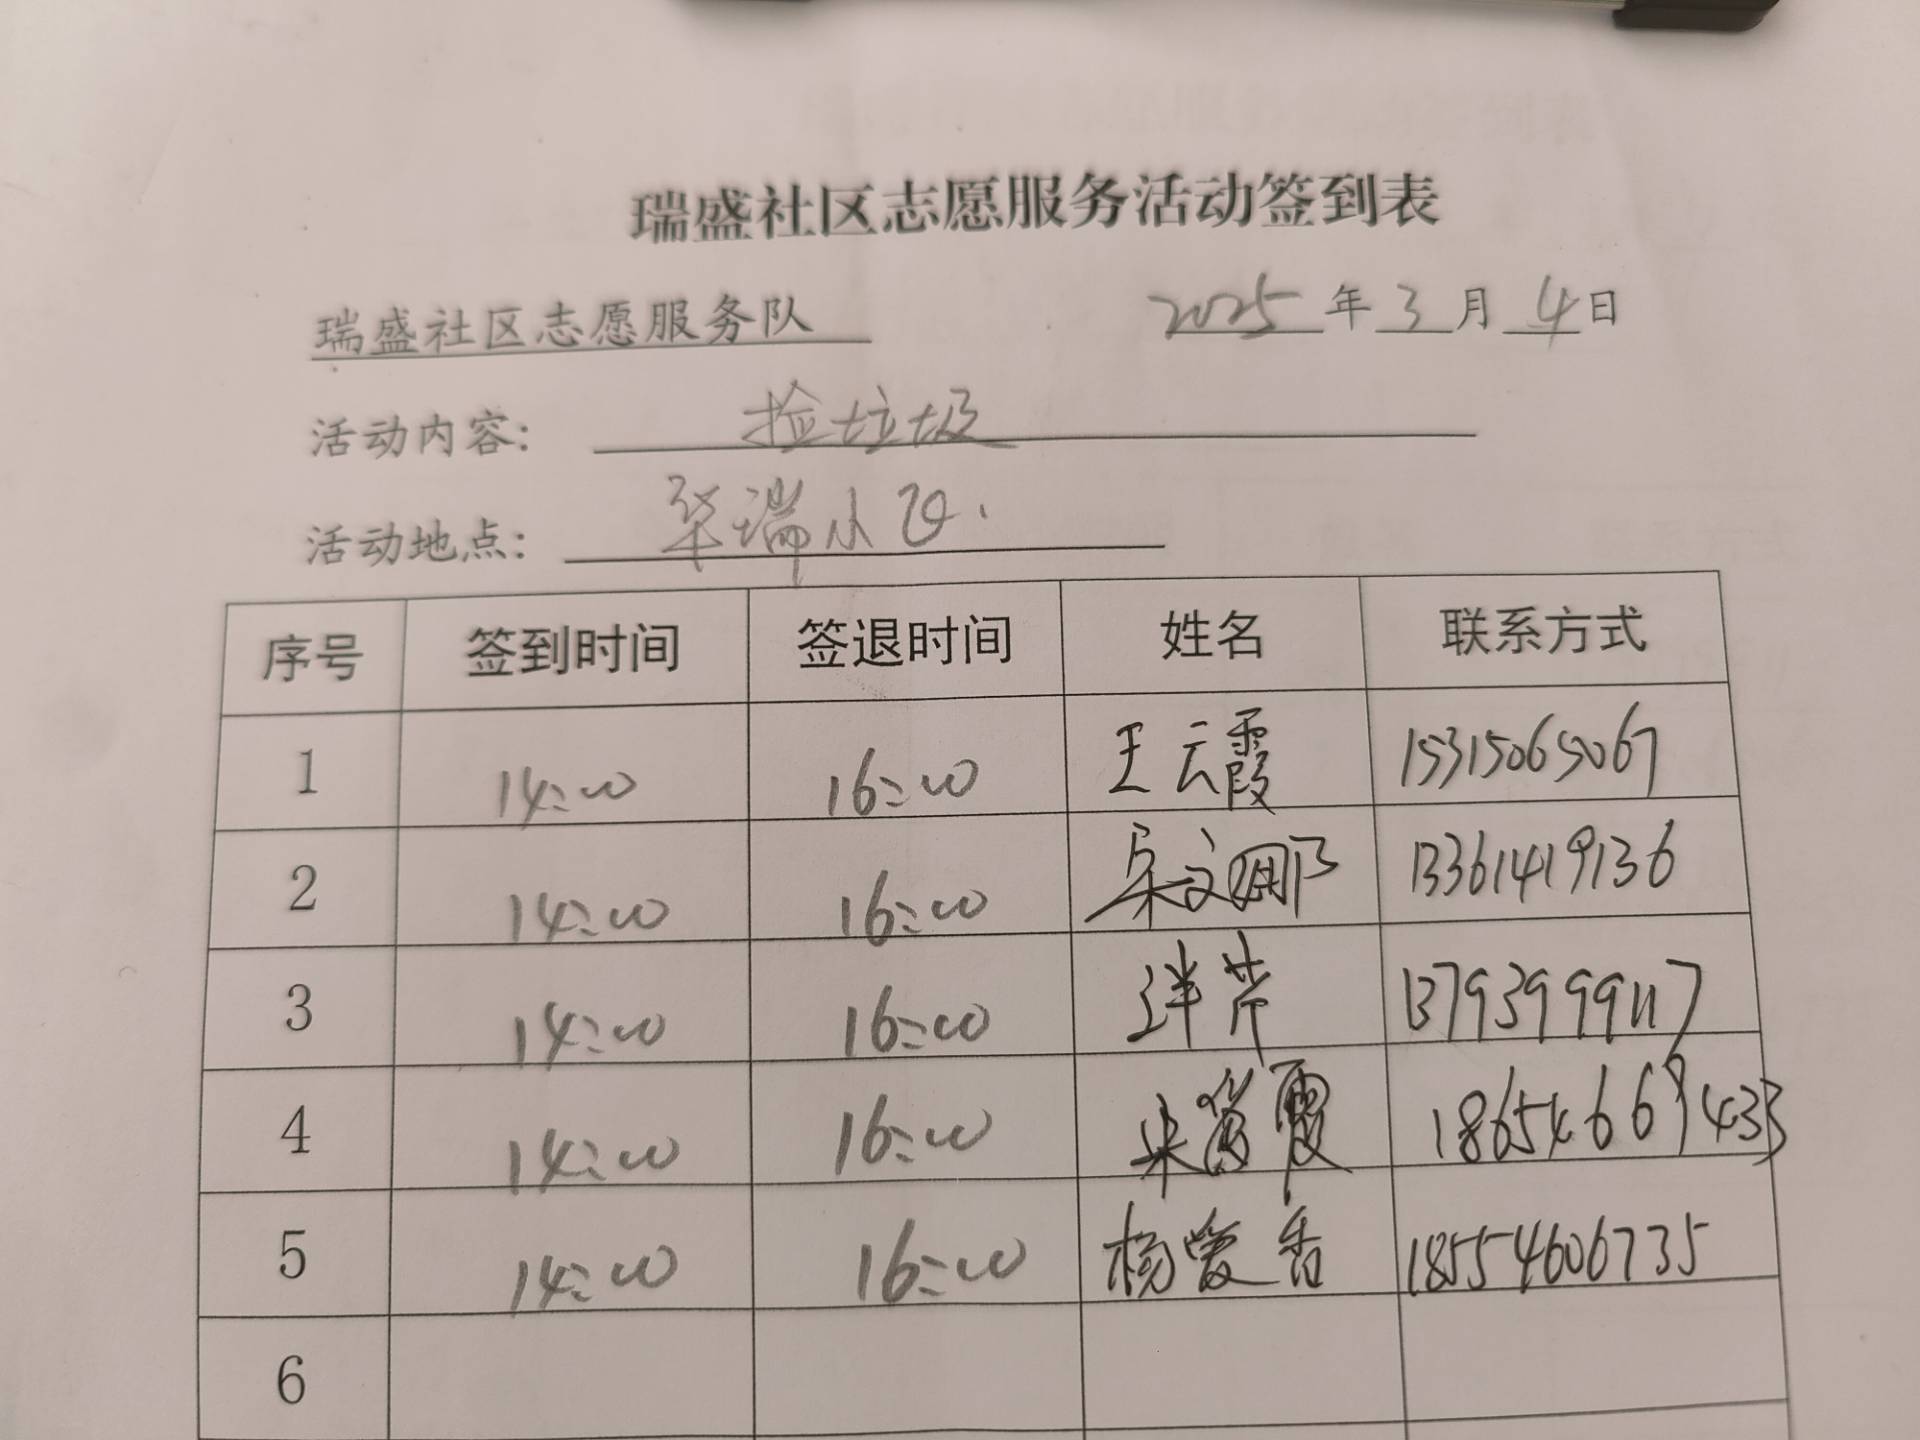 瑞盛社区志愿服务活动签到表
瑞盛社区志愿服务队 2025年3月4日
活动内容: 捡垃圾
活动地点: 华瑞小区.
序号 签到时间 签退时间 姓名 联系方式
1 14:00 16:00 王云霞 15315065067
2 14:00 16:00 吴文娜 13361419136
3 14:00 16:00 芹 13793999117
4 14:00 16:00 霞 18654669433
5 14:00 16:00 杨爱香 18554606735
6